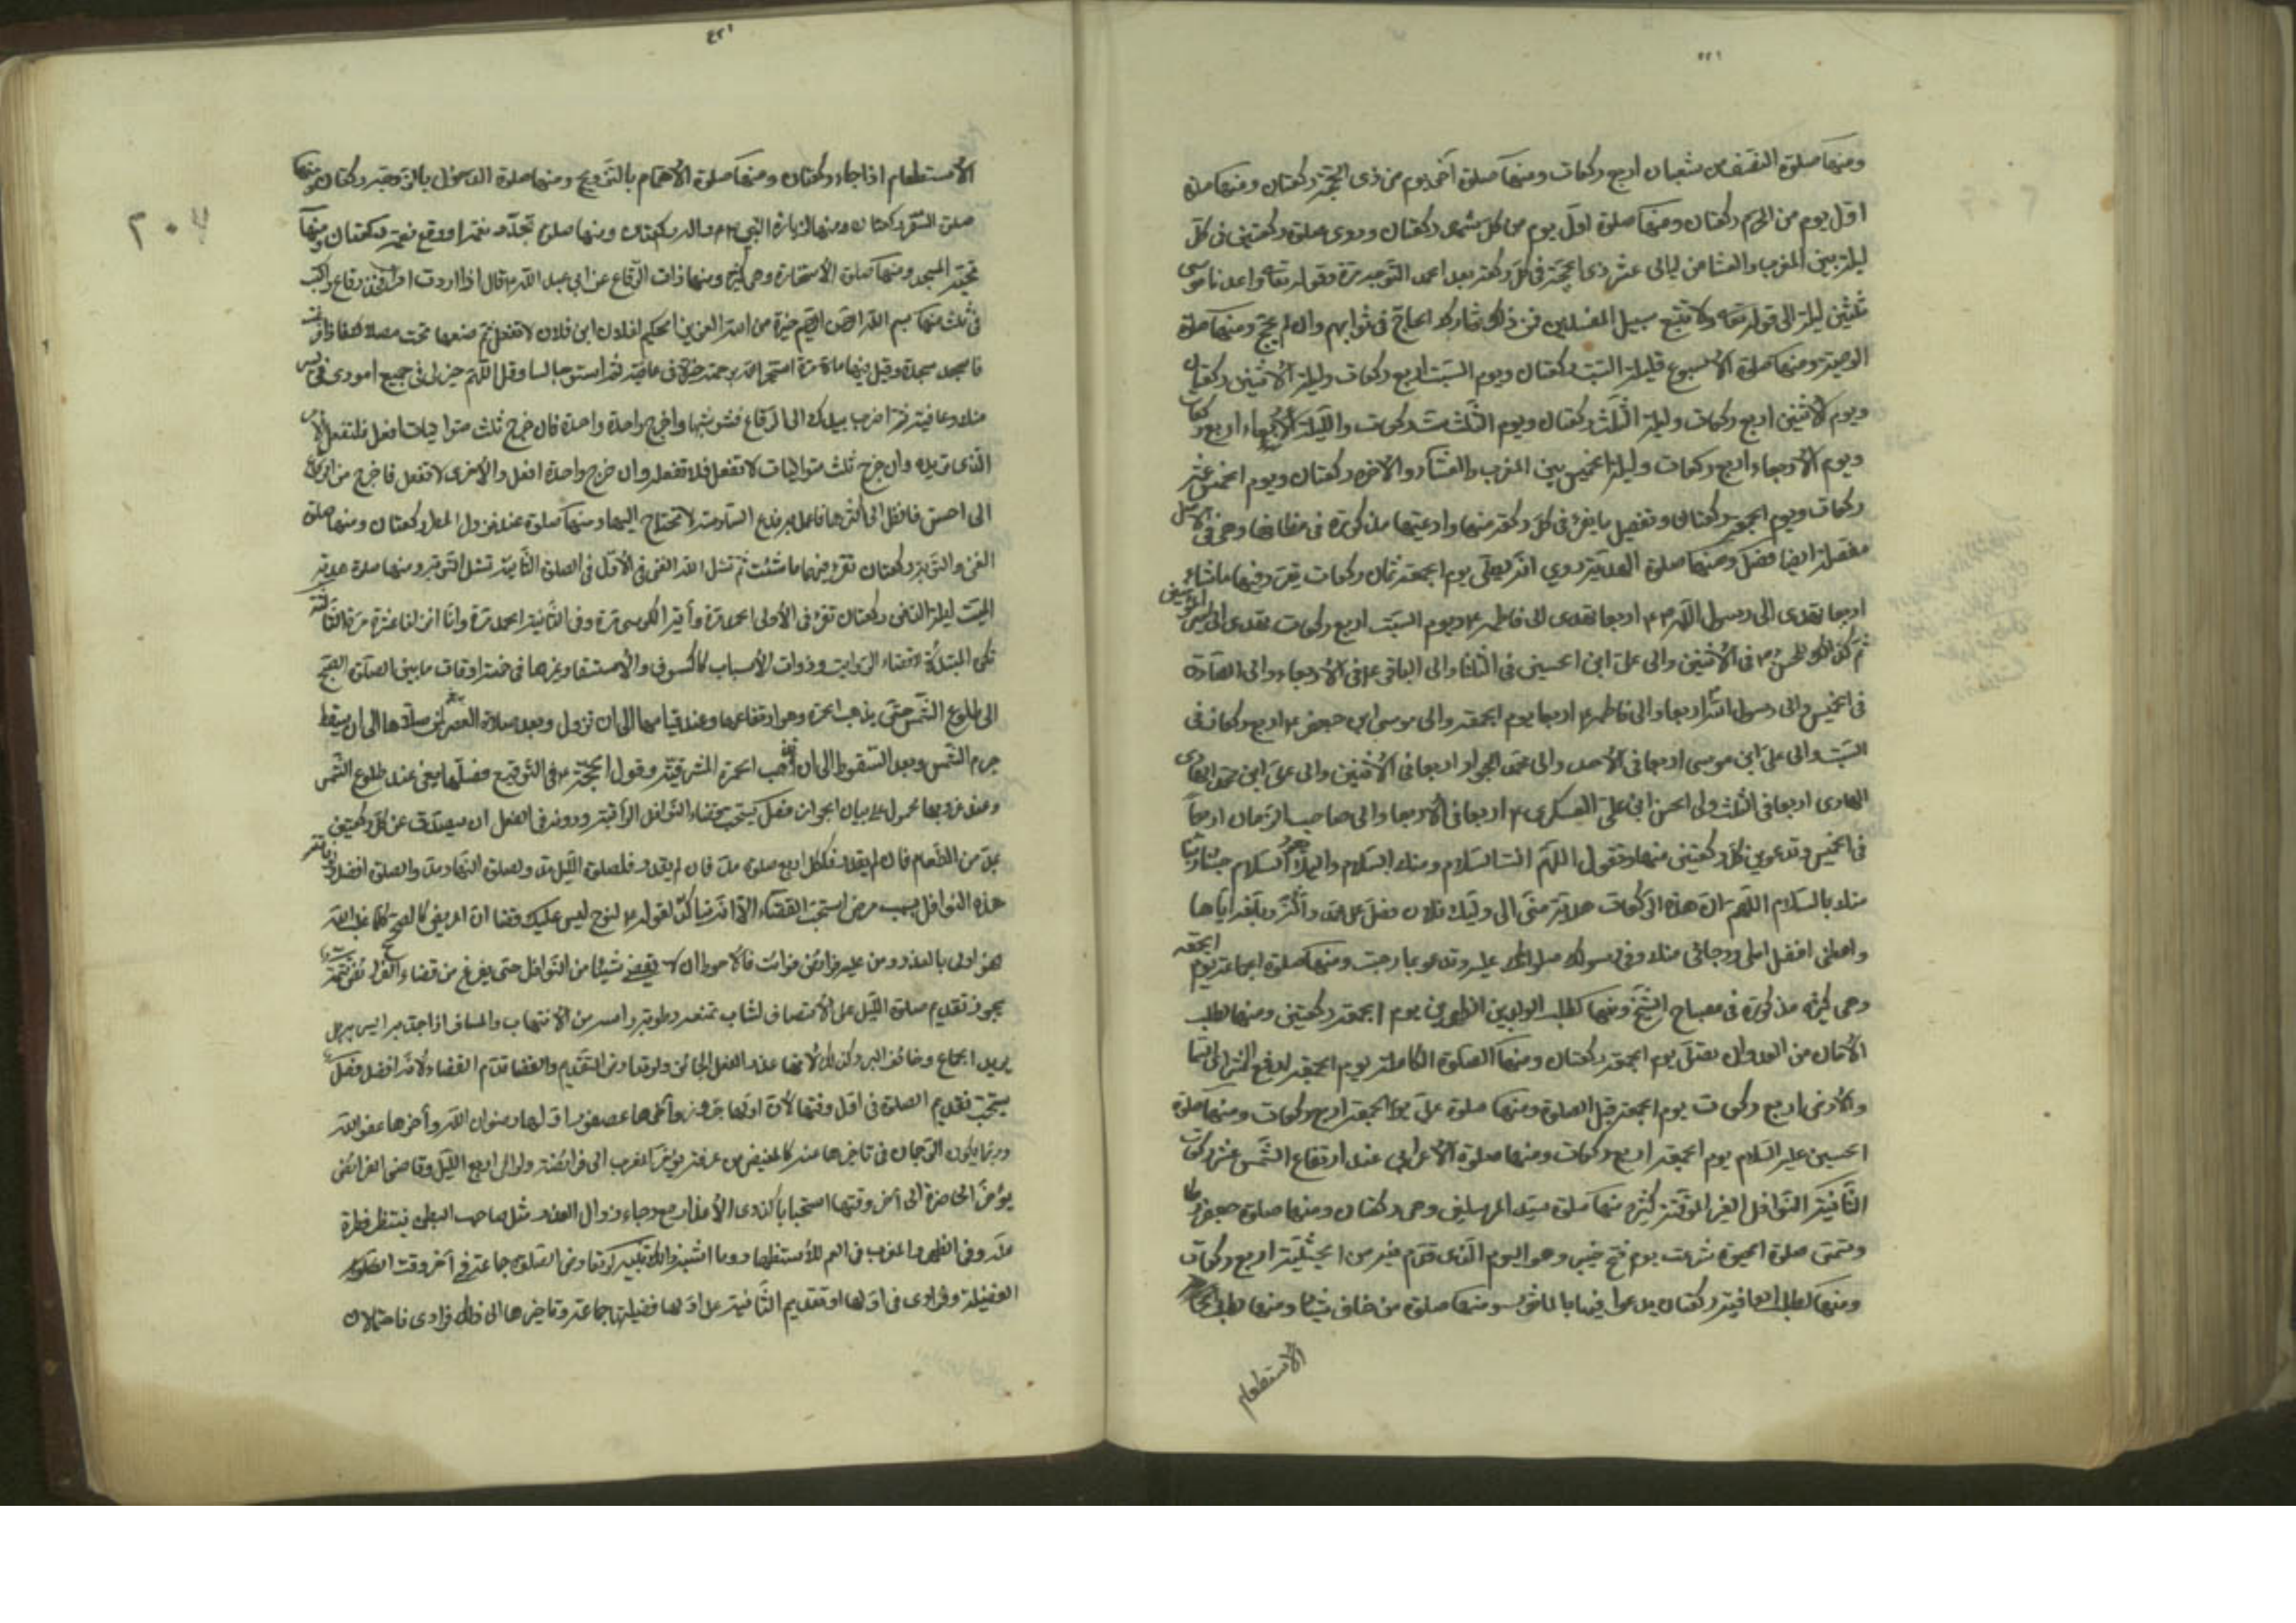 ومنها صلوة النصف من شعبان اربع ركعات ومنها صلوة آخر يوم من ذى الحجة ركعتان ومنها صلوة
اول يوم من المحرم ركعتان ومنها صلوة اول يوم من كل شهر ركعتان وروى صلوة ركعتين فى كل
ليلة بين المغرب والعشا من ليالى عشر ذى الحجة فى كل ركعة بعد الحمد التوحيد مرة وقوله تعا واعدنا موسى
ثلثين ليلة الى قوله تعا ولا تتبع سبيل المفسدين فمن ذلك شارك الحاج فى ثوابهم وان لم يحج ومنها صلوة
الوصية ومنها صلوة الاسبوع فليلة السبت ركعتان ويوم السبت اربع ركعات وليلة الاثنين ركعتان
ويوم الاثنين اربع ركعات وليلة الثلث ركعتان ويوم الثلث ست ركعات والليلة الاربعاء اربع ركعات
ويوم الاربعاء اربع ركعات وليلة الخميس بين المغرب والعشاء والاخرة ركعتان ويوم الخميس عشر
ركعات ويوم الجمعة ركعتان وتفصيل ما يقرء فى كل ركعة منها وادعيتها مذكورة فى مظانها وهى فى الاصل
مفصلة ايضا فصل ومنها صلوة الهدية روي انه يصلى يوم الجمعة ثمان ركعات يقرء فيها ماشاء
اربعا تهدى الى رسول الله ص واربعا تهدى الى فاطمه ع ويوم السبت اربع ركعات تهدى الى امير المؤمنين
ثم كذلك للحسن ع فى الاثنين والى على ابن الحسين فى الثلثا والى الباقر ع فى الاربعاء والى الصادق
فى الخميس والى رسول الله اربعا والى فاطمه ع اربعا يوم الجمعة والى موسى ابن جعفر ع اربع ركعات فى
السبت والى على ابن موسى اربعا فى الاحد والى محمد الجواد اربعا فى الاثنين والى على ابن محمد الهادى
الهادى اربعا فى الثلث والى الحسن ابن على العسكرى ع اربعا فى الاربعا والى صاحب الزمان اربعا
فى الخميس وتدعو بين كل ركعتين منها وتقول اللهم انت السلام ومنك السلام واليك يعود السلام حينا ربنا
منك بالسلام اللهم ان هذه الركعات هدية منى الى وليك فلان فصل على محمد وآله وبلغه اياها
واعطنى افضل املى ورجائى منك وفى رسولك صلواتك عليه وتدعو بما احببت ومنها صلوة الحاجة يوم الجمعة
وهى كثيرة مذكورة فى مصباح الشيخ ومنها لطلب الولد بين الظهرين يوم الجمعة ركعتين ومنها لطلب
الامان من العدو ان يصلى يوم الجمعة ركعتان ومنها الصلوة الكاملة يوم الجمعة لدفع شر اهل السما
والارض اربع ركعات يوم الجمعة قبل الصلوة ومنها صلوة على يوم الجمعة اربع ركعات ومنها صلوة
الحسين عليه السلام يوم الجمعة اربع ركعات ومنها صلوة الاعرابى عند ارتفاع الشمس عشر ركعات
الثانية النوافل الغير الموقتة كثيرة منها صلوة سيد المرسلين وهى ركعتان ومنها صلوة جعفر
وتسمى صلوة الحبوة شرعت يوم فتح خيبر وهو اليوم الذى قدم فيه من الحبشية اربع ركعات
ومنها لطلب العافية ركعتان يدعوا فيها بالماثور ومنها صلوة من خاف شيئا ومنها لطلب
الاستطعام
الاستطعام اذا جاء ركعتان ومنها صلوة الاهتمام بالتزويج ومنها صلوة الدخول بالزوجة ركعتان ومنها
صلوة السفر ركعتان ومنها لزيارة النبى ص واله ركعتان ومنها صلوة تجدد نعمة او دفع نقمة ركعتان ومنها
تحية المسجد ومنها صلوة الاستخارة وهى كثيرة ومنها ذات الرقاع عن ابى عبد الله ع قال اذا اردت امرا فخذ رقاع واكتب
فى ثلث منها بسم الله الرحمن الرحيم خيرة من الله العزيز الحكيم لفلان ابن فلان لا تفعل ثم ضعها تحت مصلاك فاذا فرغت
فاسجد سجدة وقل فيها مائة مرة استخير الله برحمته خيرة فى عافية ثم استو جالسا وقل اللهم خير لى فى جميع امورى فى يسر
منك وعافية ثم اضرب بيدك الى الرقاع فشوشها واخرج واحدة واحدة فان خرج ثلث متواليات افعل فلتفعل الامر
الذى تريده وان خرج ثلث متواليات لا تفعل فلا تفعله وان خرج واحدة افعل والاخرى لا تفعل فاخرج من الرقاع
الى احسن فانظر الى اكثرها فاعمل به ودع السادسة لا تحتاج اليها ومنها صلوة عند نزول المطر ركعتان ومنها صلوة
الغنى والتوبة ركعتان تقرء فيهما ما شئت ثم تسئل الله الغنى فى الاول فى الصلوة الثانية تسئل التوبة ومنها صلوة هدية
الميت ليلة الدفن ركعتان تقرء فى الاولى الحمد مرة وآية الكرسى مرة وفى الثانية الحمد مرة وانا انزلناه عشرة مرة الثالثة
تكره المبتدئة وقضاء الرواتب وذوات الاسباب كالكسوف والاستسقا وغيرها فى خمسة اوقات ما بين الصلوة الصبح
الى طلوع الشمس حتى يذهب الحمرة وهو ارتفاعها وعند قيامها الى ان تزول وبعد صلوة العصر لمن صلاها الى ان يسقط
جرم الشمس وبعد السقوط الى ان تذهب الحمرة المشرقية وقول الحجة ع فى التوقيع فصلها يعنى عند طلوع الشمس
وعند غروبها محمول على بيان الجواز فصل يستحب قضاء النوافل الراتبة ودونه فى الفضل ان يتصدق عن كل ركعتين
بمد من الطعام فان لم يقدر فلكل اربع صلوة مد فان لم يقدر فلصلوة الليل مد ولصلوة النهار مد والصلوة افضل
هذه النوافل بسبب مرض استحب القضاء الا انه غير متاكد لقوله ع ليس عليك قضا ان المريض كالصحيح كلما غلب الله
فهو اولى بالعذر ومن عليه فرائض فوائت فالاحوط ان لا يقضى شيئا من النوافل حتى يفرغ من قضاء الفرائض تتمة
يجوز تقديم صلوة الليل على الانتصاف لشاب تمنعه رطوبة راسه من الانتباه والمسافر اذا جد به السير
يريد الجماع وخائف البرد وكذلك لانها عذر الفعل الجائز ولو تعارض التقديم والقضا قدم القضاء لانه افضل فصل
يستحب تقديم الصلوة فى اول وقتها لان اولها جزور وآخرها عصفور اولها رضوان الله وآخرها عفو الله
وربما يكون الرجحان فى تاخيرها عنه كالمفيض من عرفة يؤخر المغرب الى مزدلفة ولو الى ربع الليل وقاضى الفرائض
يؤخر الحاضرة الى آخر وقتها استحبابا كذوى الاعذار مع رجاء زوال العذر مثل صاحب البطن فينتظر فطرة
مد وفى الظهر والمغرب فى الغيم للاستظهار
الفضيلة وفرادى فى اولها او تقديم الثانية على اولها فضيلتها جماعة وتاخيرها الى ذلك فرادى فاحتمالان